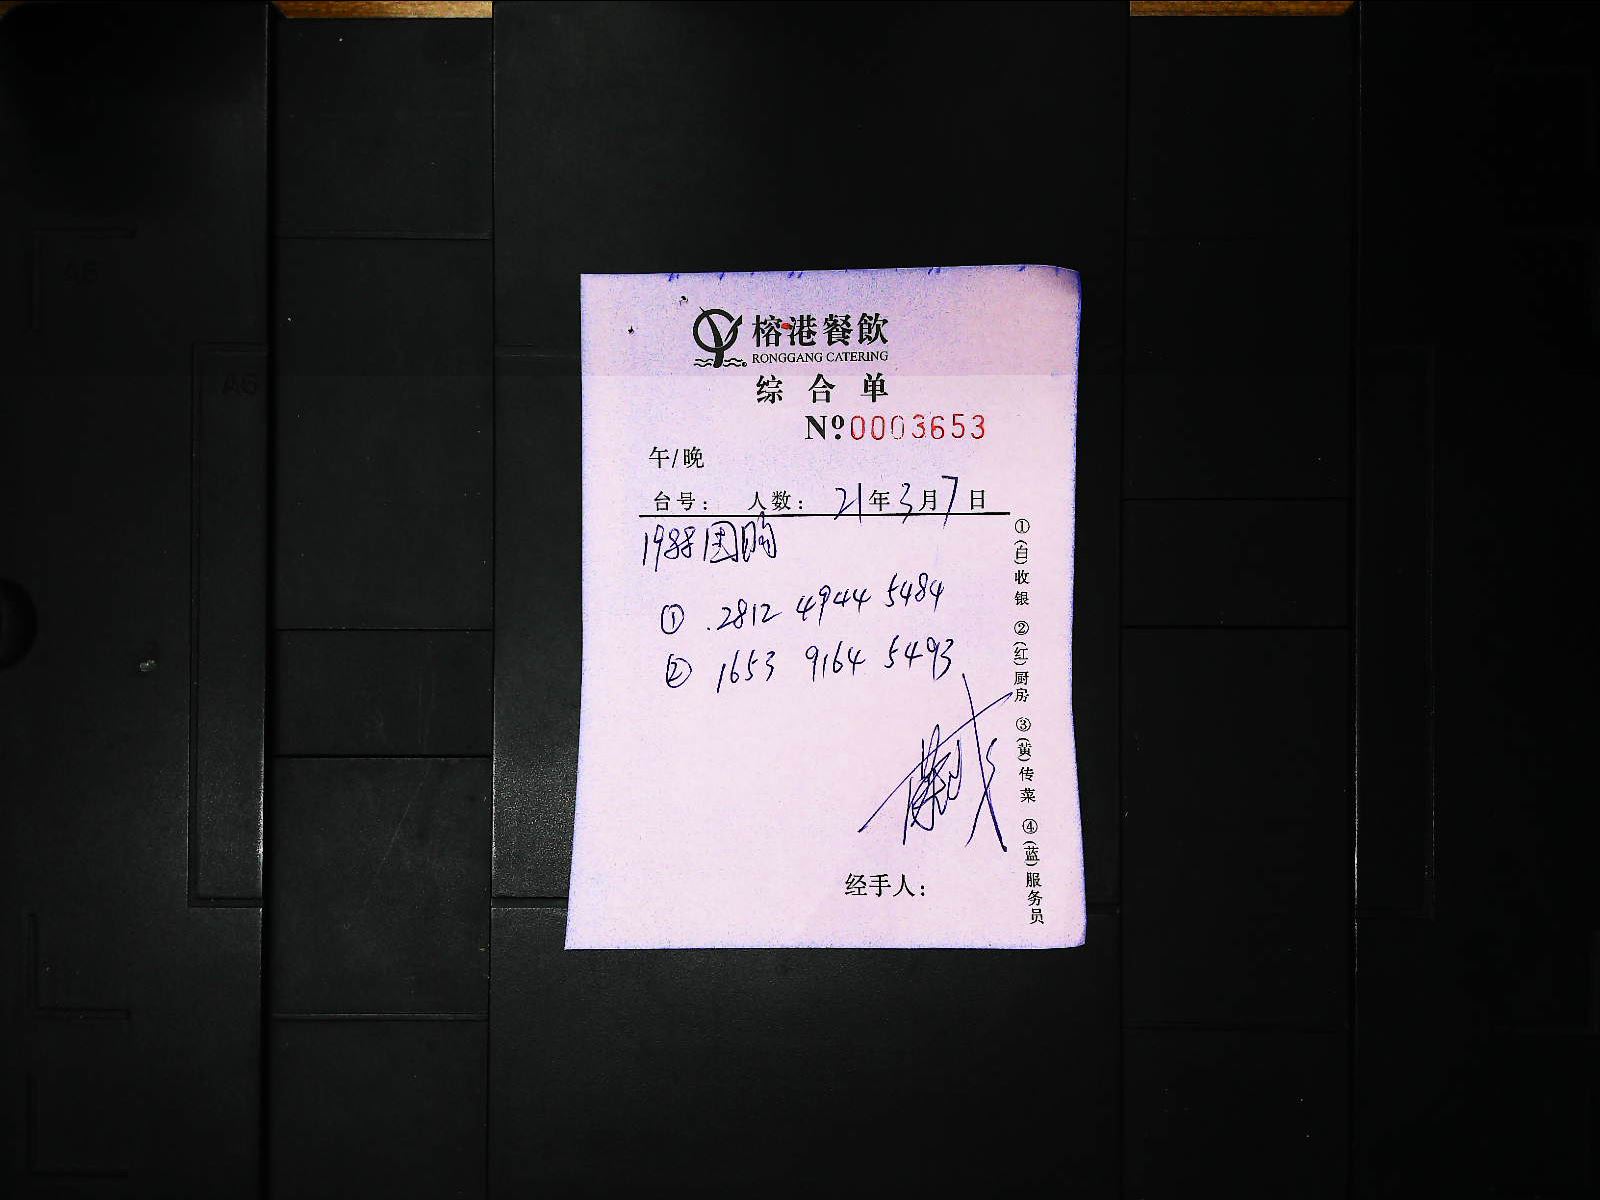 榕港餐飲
RONGGANG CATERING
综合单
Nº 0003653
午/晚
台号： 人数： 21年3月7日
1988团购
① .2812 4944 5484
② 1653 9164 5493
经手人：
①(白)收银 ②(红)厨房 ③(黄)传菜 ④(蓝)服务员
A5
A6